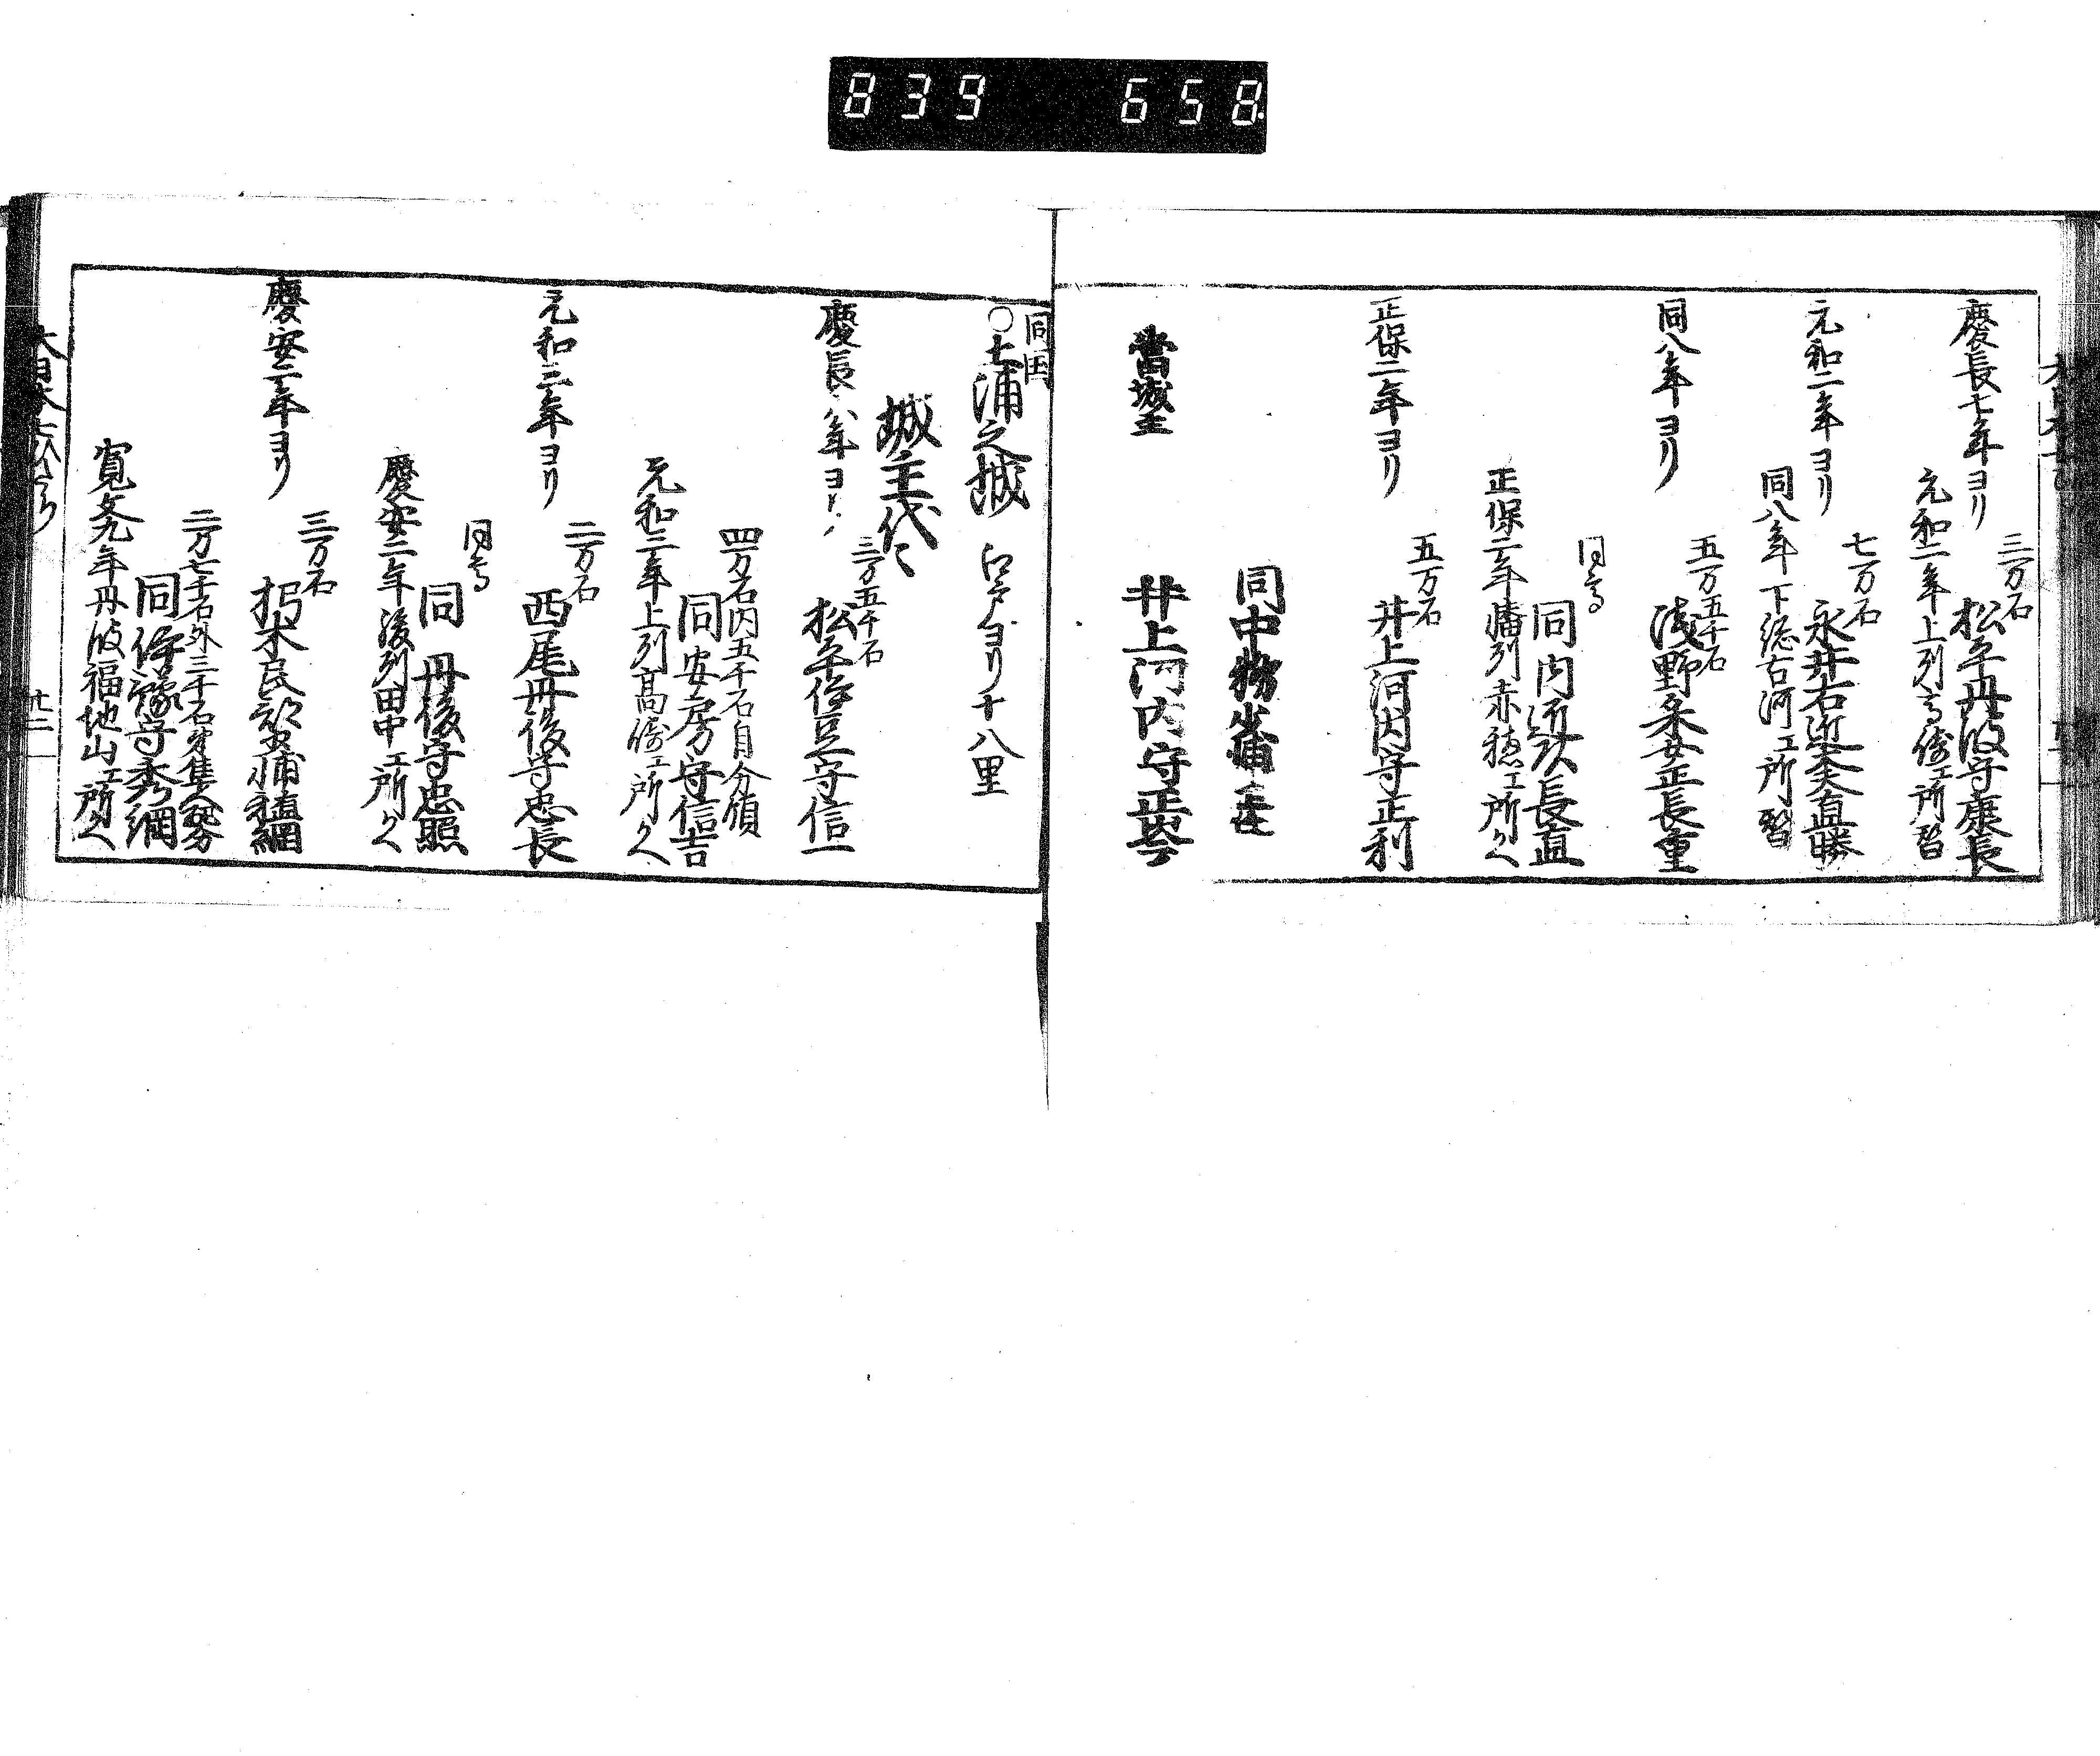 839 658
慶長七年ヨリ
三万石
松平丹波守康長
元和二年上列高﨑エ所替
元和二年ヨリ
七万石
永井右近大夫直勝
同八年下総古河エ所替
同八年ヨリ
五万五千石
浅野采女正長重
同高
同内匠頭長直
正保二年播列赤穂エ所かへ
正保二年ヨリ
五万石
井上河内守正利
同中務少輔正任
當城主
井上河内守正岑
同国
〇土浦之城 江戸ヨリ十八里
城主代々
慶長八年ヨリ
三万五千石
松平伊豆守信一
四万石内五千石自分領
同安房守信吉
元和二年上列高﨑エ所かへ
元和三年ヨリ
二万石
西尾丹後守忠長
同高
同 丹後守忠照
慶安二年後列田中エ所かへ
慶安二年ヨリ
三万石
朽木民部少輔稙綱
二万七千石外三千石弟隼人配分
同伊豫守秀綱
寛文九年丹波福地山エ所かへ